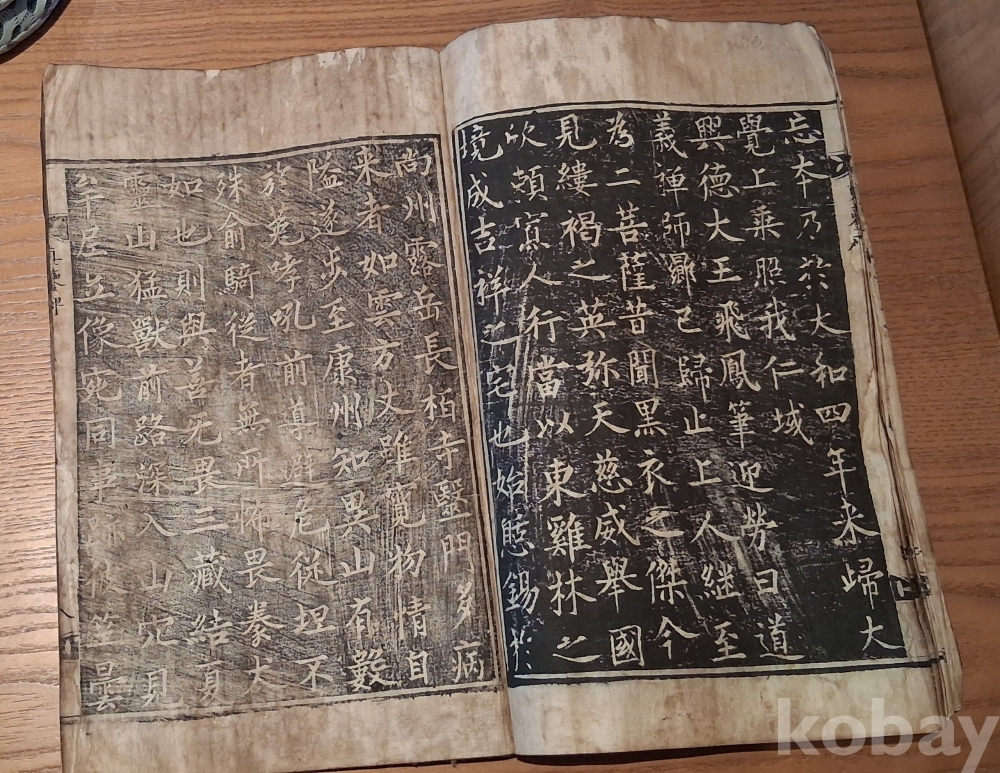 忘夲乃於大和四年来歸大
覺上乗照我仁域
興德大王飛鳳筆迎勞曰道
義禅師曏已歸止上人継至
為二菩薩昔聞黒衣之傑今
見縷褐之英弥天慈威舉國
欣頼寡人行當以東雞林之
境成吉祥之宅也始憩錫於
尚州露岳長栢寺醫門多病
来者如雲方丈雖寛物情自
隘遂步至康州知異山有數
於菟哮吼前導避危従坦不
殊俞騎従者無所怖畏豢犬
如也則與善无畏三藏結夏
靈山猛獸前路深入山穴見
牟尼立像宛同事跡彼竺曇
kobay